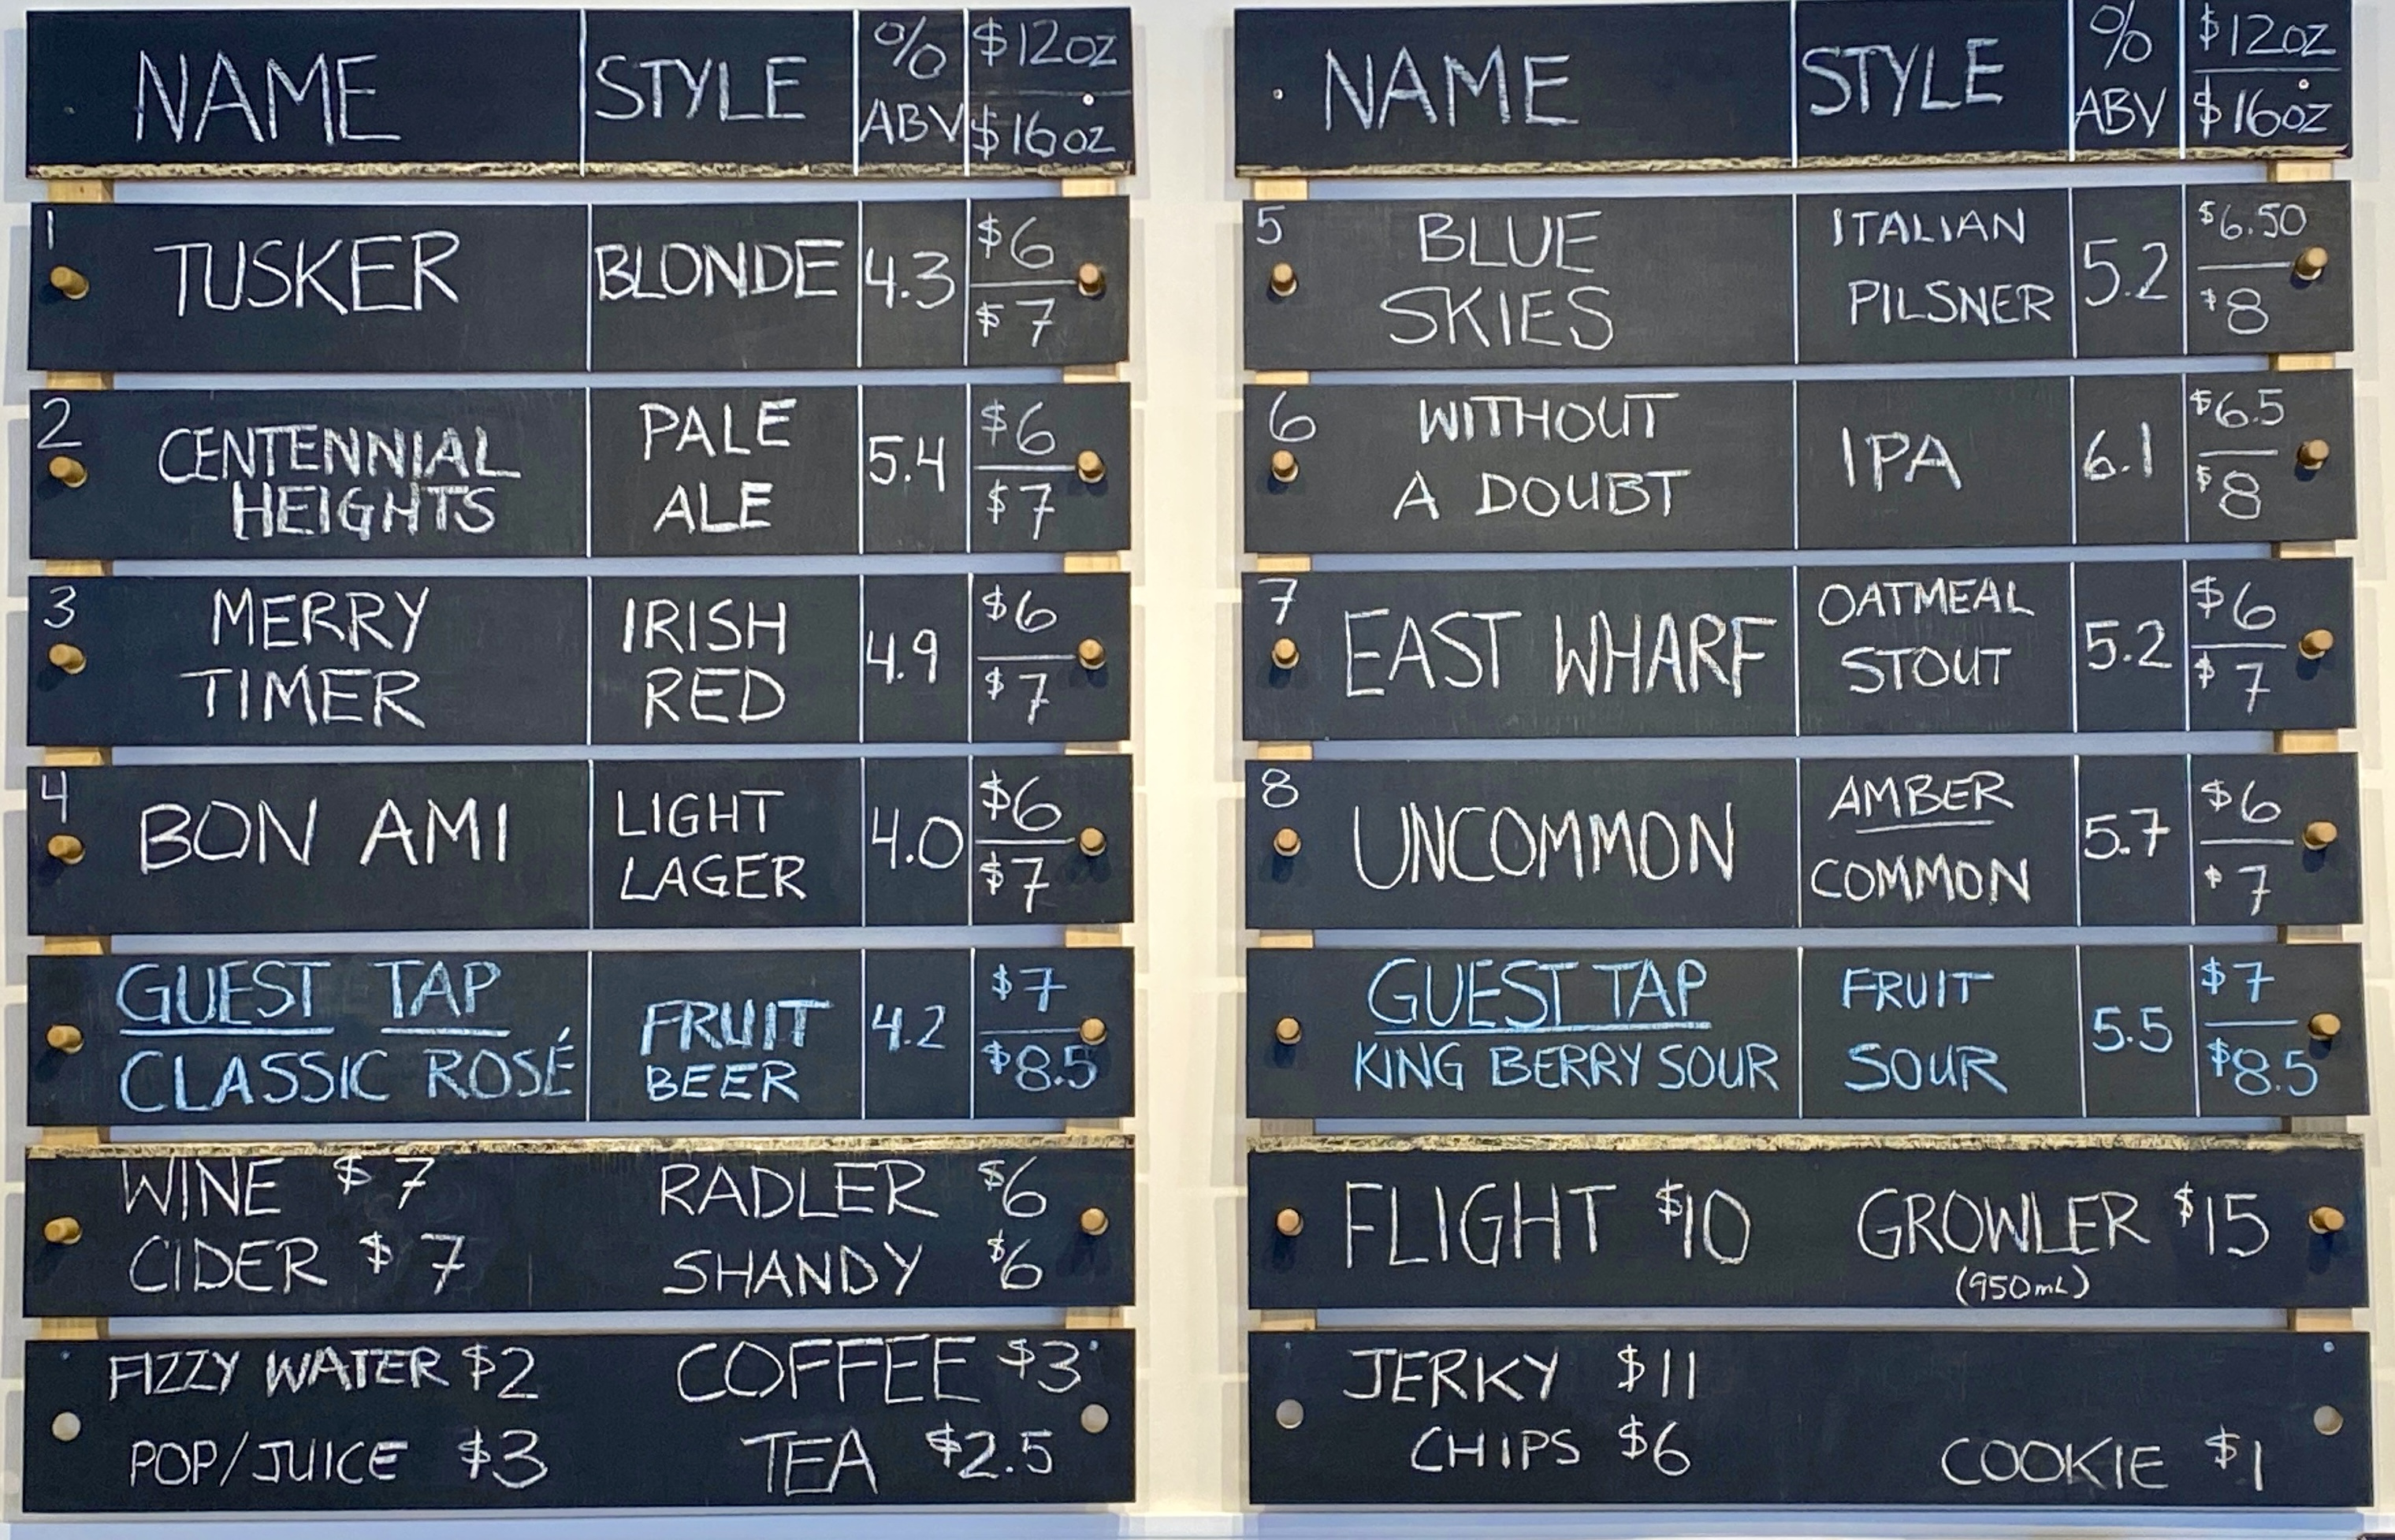 NAME STYLE % ABV $12oz $16oz
1 TUSKER BLONDE 4.3 $6 $7
2 CENTENNIAL HEIGHTS PALE ALE 5.4 $6 $7
3 MERRY TIMER IRISH RED 4.9 $6 $7
4 BON AMI LIGHT LAGER 4.0 $6 $7
GUEST TAP CLASSIC ROSÉ FRUIT BEER 4.2 $7 $8.5
WINE $7 RADLER $6
CIDER $7 SHANDY $6
FIZZY WATER $2 COFFEE $3
POP/JUICE $3 TEA $2.5
NAME STYLE % ABV $12oz $16oz
5 BLUE SKIES ITALIAN PILSNER 5.2 $6.50 $8
6 WITHOUT A DOUBT IPA 6.1 $6.5 $8
7 EAST WHARF OATMEAL STOUT 5.2 $6 $7
8 UNCOMMON AMBER COMMON 5.7 $6 $7
GUEST TAP KING BERRY SOUR FRUIT SOUR 5.5 $7 $8.5
FLIGHT $10 GROWLER $15
(950mL)
JERKY $11
CHIPS $6 COOKIE $1